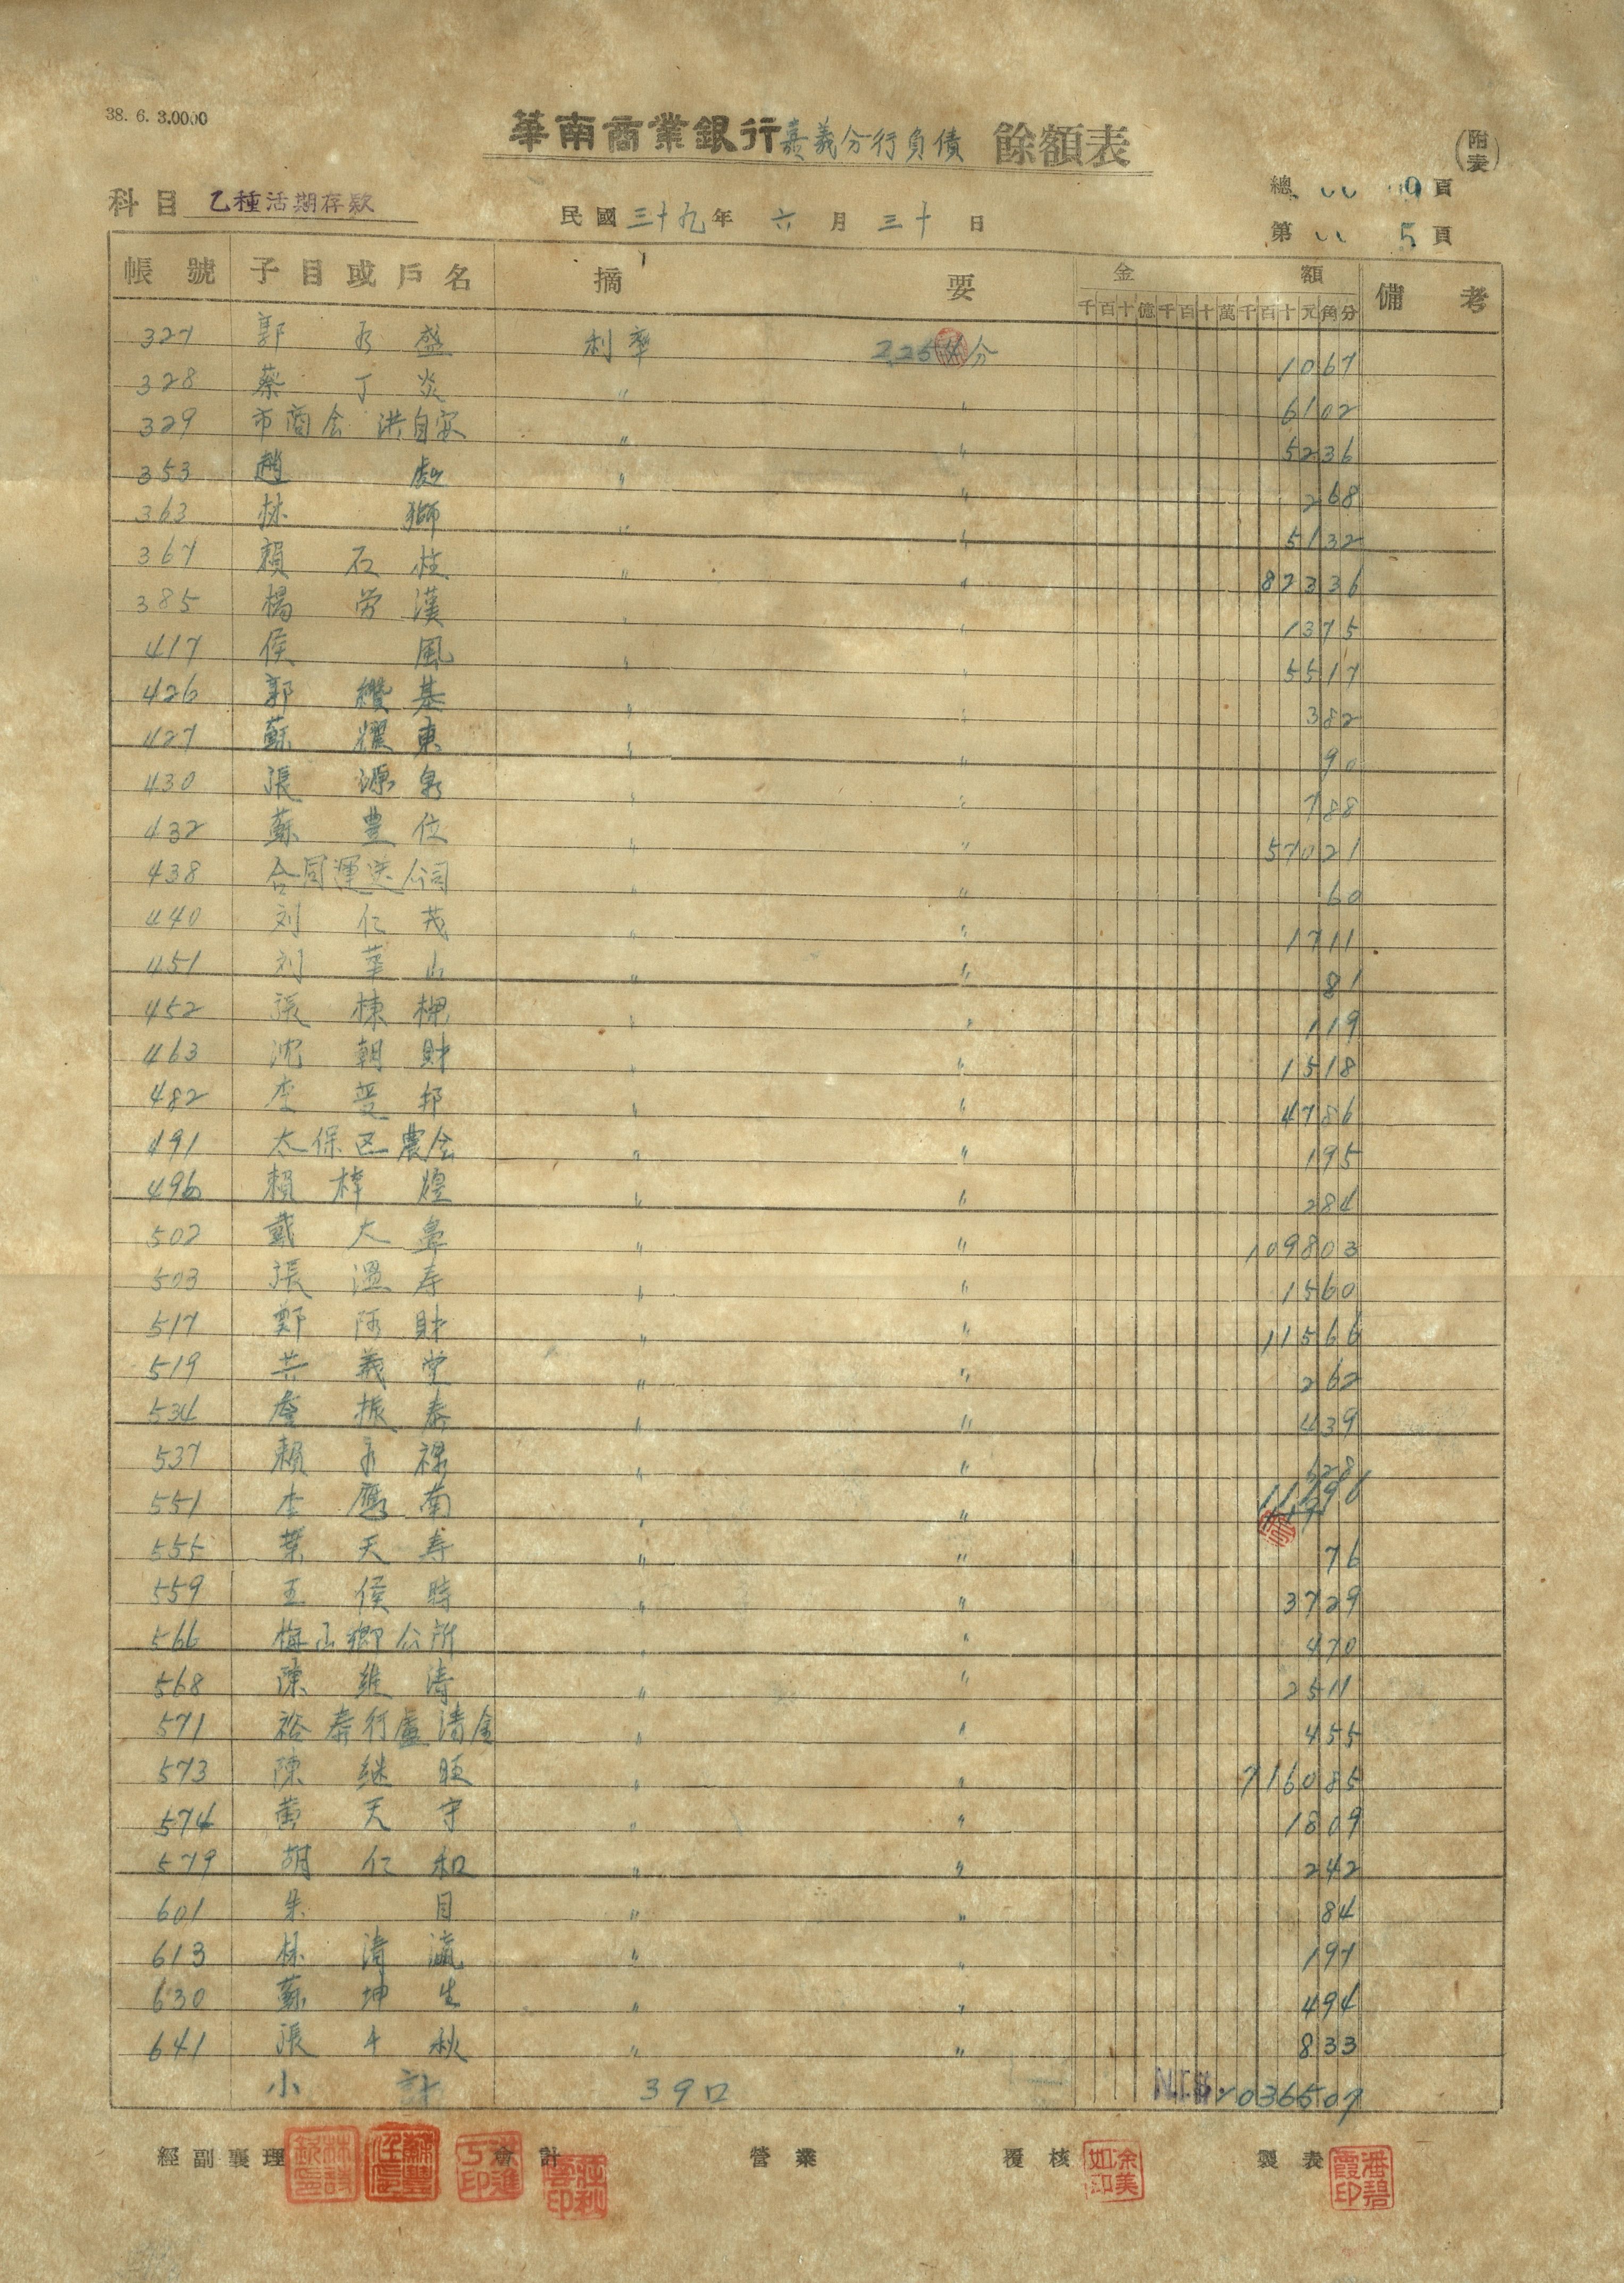 38. 6. 3.0000
華南商業銀行嘉義分行負債 餘額表
(附表)
科目 乙種活期存款
民國三十九年 六月 三十日
總 頁
第 5 頁
帳號 子目或戶名 摘要 金額 備考
千百十億千百十萬千百十元角分
327 郭永盛 利率 2.25 分 1067
328 蔡丁炎 〃 〃 6102
329 市商会 洪自安 〃 〃 5236
353 趙 〃 〃 268
363 林獅 〃 〃 5132
367 賴石柱 〃 〃 82336
385 楊労漢 〃 〃 1375
417 侯風 〃 〃 5517
426 郭續基 〃 〃 382
427 蘇耀東 〃 〃 90
430 張源泉 〃 〃 788
432 蘇豊位 〃 〃 57021
438 合同運送公司 〃 〃 60
440 刘仁茂 〃 〃 1711
451 刘華山 〃 〃 81
452 張棟樑 〃 〃 119
463 沈朝財 〃 〃 1518
482 李邦 〃 〃 4786
491 太保区農会 〃 〃 195
496 賴梓煌 〃 〃 284
502 戴大 〃 〃 109803
503 張溫寿 〃 〃 1560
517 鄭阿財 〃 〃 11566
519 共義堂 〃 〃 262
534 詹振泰 〃 〃 439
537 賴永祿 〃 〃 628
551 李應南 〃 〃
555 葉天寿 〃 〃 76
559 王侯時 〃 〃 3729
566 梅山鄉公所 〃 〃 470
568 陳維涛 〃 〃 2511
571 裕泰行盧清金 〃 〃 455
573 陳継旺 〃 〃 716085
574 黄天守 〃 〃 1809
579 胡仁和 〃 〃 242
601 朱目 〃 〃 84
613 林清瀛 〃 〃 197
630 蘇坤生 〃 〃 494
641 張千秋 〃 〃 833
小計 39口 NT$ 1036507
經副襄理 會計 營業 覆核 涂美如印 製表 潘碧霞印